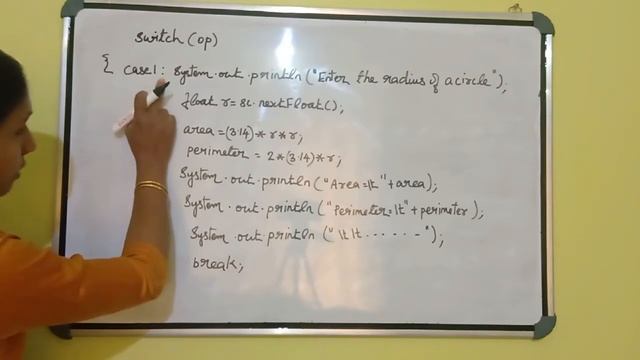 switch (op)
{ case 1: System.out.println("Enter the radius of a circle");
float r = sc.nextFloat();
area = (3.14)*r*r;
perimeter = 2*(3.14)*r;
System.out.println("Area=\t"+area);
System.out.println("Perimeter=\t"+perimeter);
System.out.println("\t\t.....-");
break;